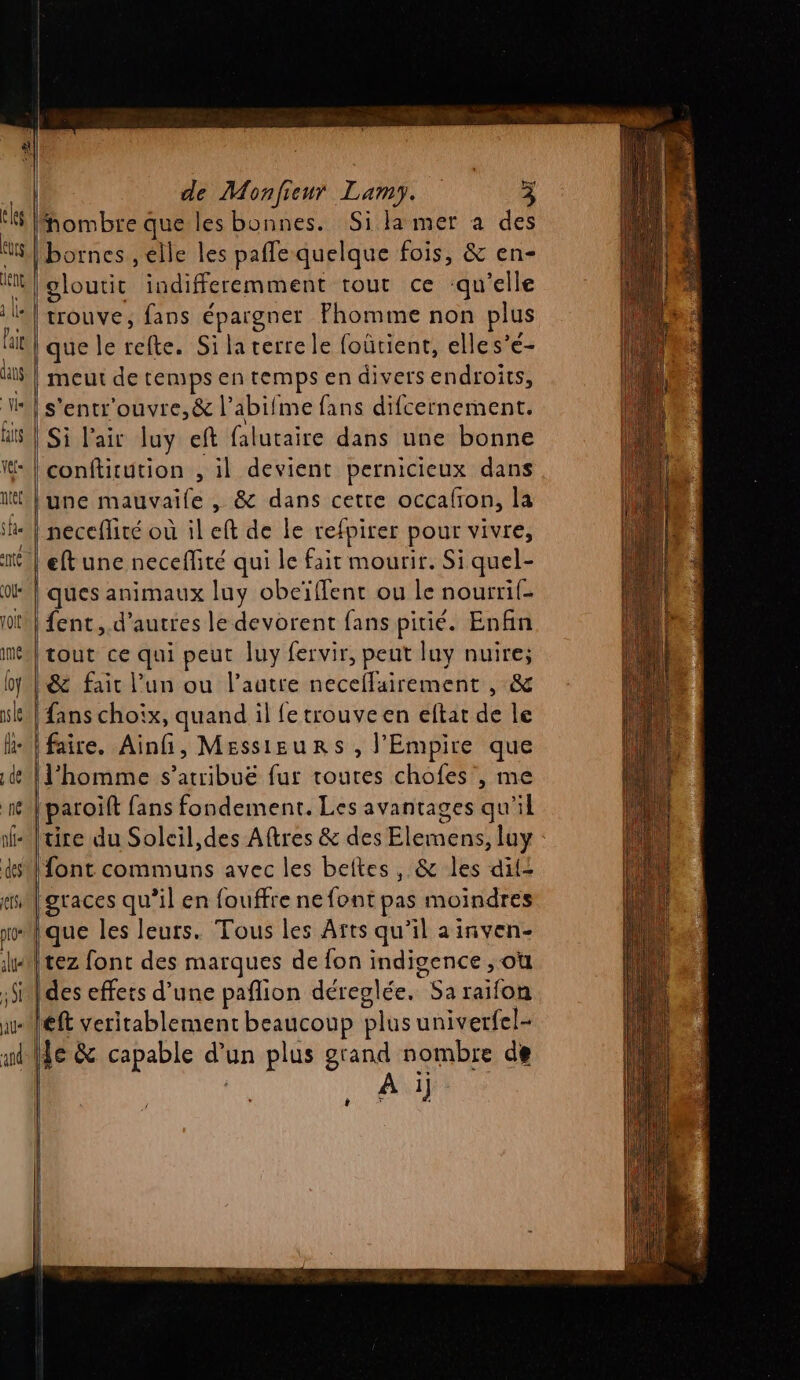 de Monſieur Lamy. 3
nombre que les bonnes. Si la mer a des
bornes, elle les paſſe quelque fois, & en-
gloutit indifferemment tout ce qu'elle
trouve, ſans épargner l'homme non plus
que le reſte. Si la terre le ſoûtient, elle s'é-
meut de temps en temps en divers endroits,
s'entr'ouvre, & l'abiſme ſans diſcernement.
Si l'air luy eſt ſalutaire dans une bonne
conſtitution , il devient pernicieux dans
une mauvaiſe , & dans cette occaſion, la
neceſſité où il eſt de le reſpirer pour vivre,
eſt une neceſſité qui le fait mourir. Si quel-
ques animaux luy obeïſſent ou le nourriſ-
ſent, d'autres le devorent ſans pitié. Enfin
tout ce qui peut luy ſervir, peut luy nuire;
& fait l'un ou l'autre neceſſairement , &
ſans choix, quand il ſe trouve en eſtat de le
faire. Ainſi, MESSIEURS, l'Empire que
l'homme s'attribuë ſur toutes choſes, me
paroiſt ſans fondement. Les avantages qu'il
tire du Soleil, des Aſtres & des Elemens, luy
ſont communs avec les beſtes, & les diſ-
graces qu'il en ſouffre ne ſont pas moindres
que les leurs. Tous les Arts qu'il a inven-
tez ſont des marques de ſon indigence, où
des effets d'une paſſion déreglée. Sa raiſon
eſt veritablement beaucoup plus univerſel-
le & capable d'un plus grand nombre de
A ij